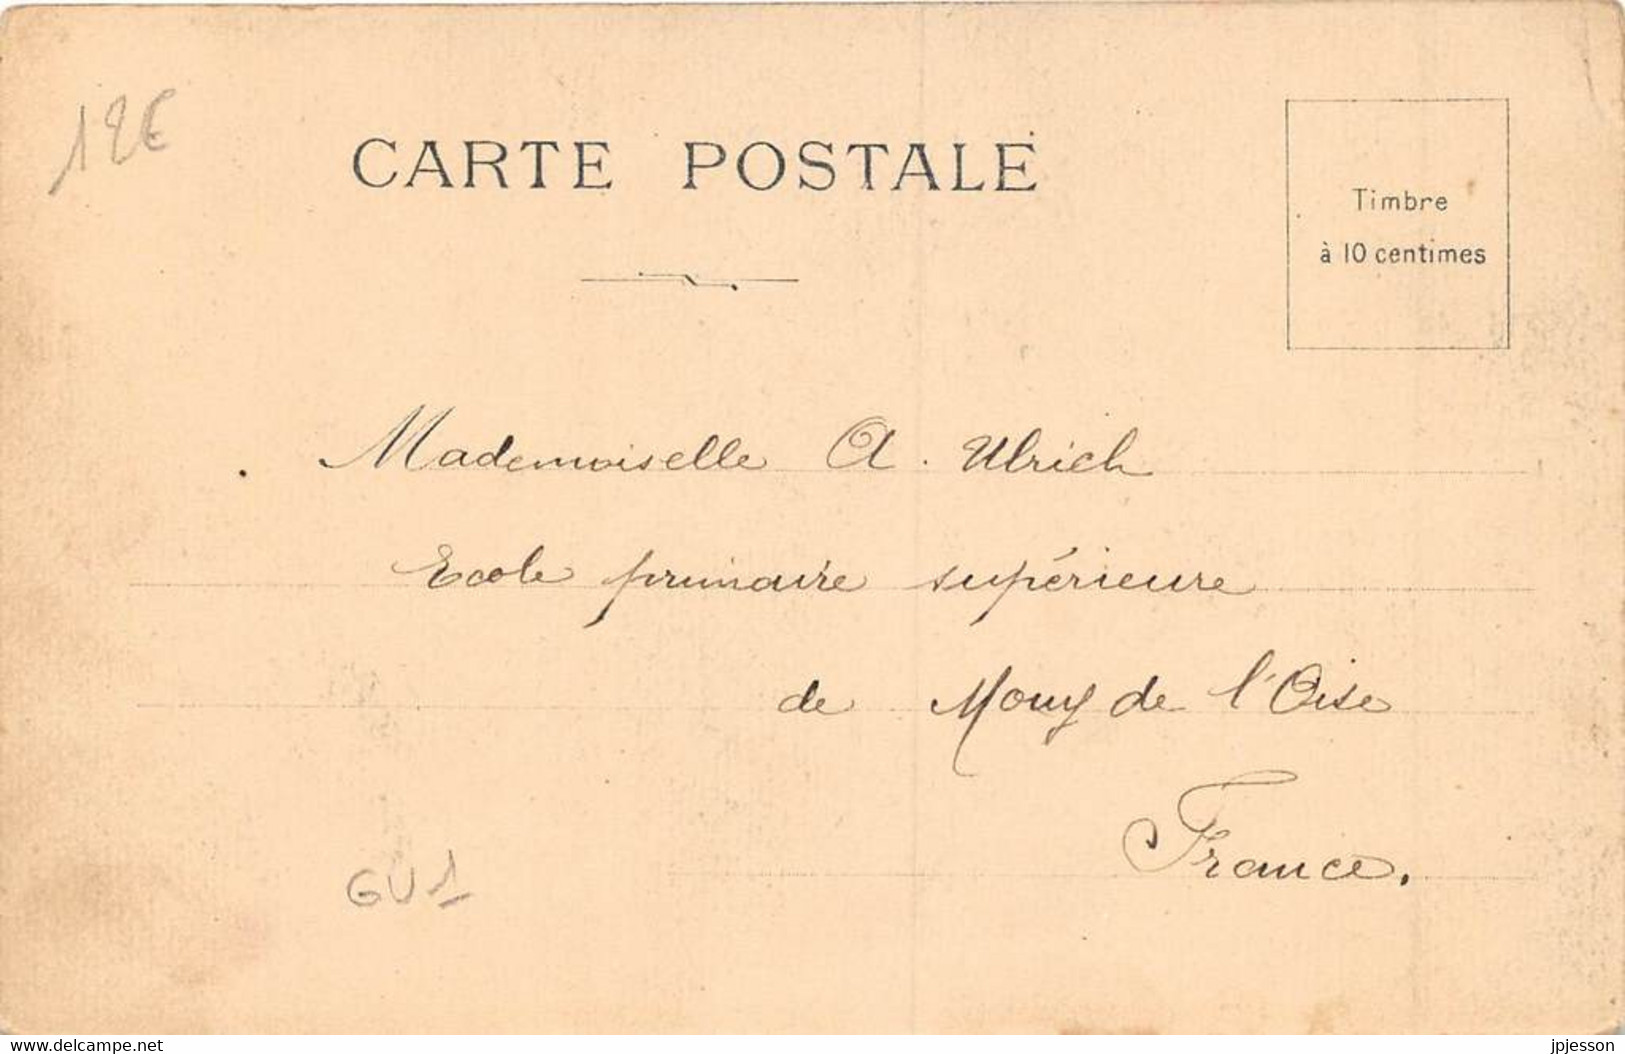 12€
CARTE POSTALE
Timbre
à 10 centimes
Mademoiselle A. Ulrich
Ecole primaire supérieure
de Mouy de l'Oise
France.
GU1
www.delcampe.net
jpjesson